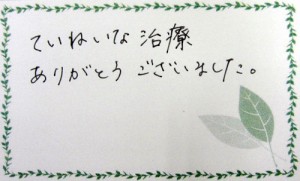 ていねいな治療
ありがとうございました。